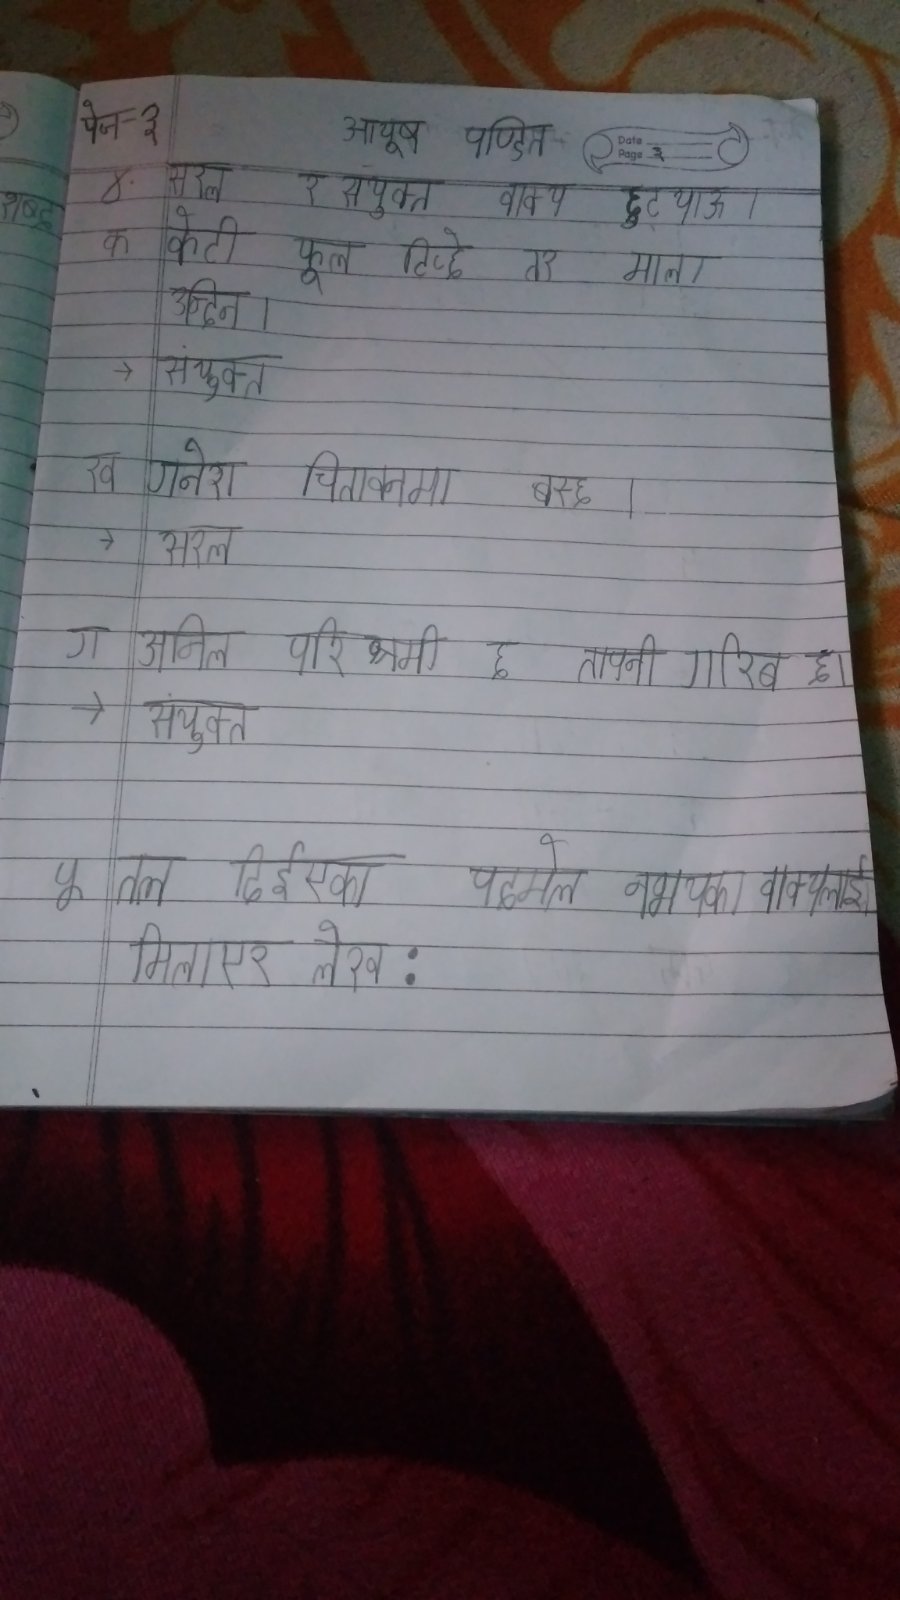 पेज-३ आयूष पण्डित
Date
Page ३
४. सरल र संयुक्त वाक्य छुट्याऊ ।
क केटी फूल टिप्छे तर माला
उन्दिन ।
→ संयुक्त
ख गनेश चितावनमा बस्छ ।
→ सरल
ग अनिल परिश्रमी छ तापनी गरिब छ।
→ संयुक्त
५ तल दिईएका पदमेल नभएका वाक्यलाई
मिलाएर लेख :
शब्द